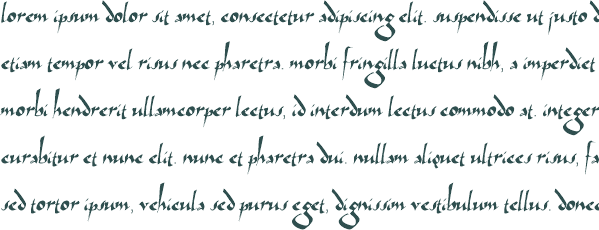 lorem ipsum dolor sit amet, consectetur adipiscing elit. suspendisse ut justo d
etiam tempor vel risus nec pharetra. morbi fringilla luctus nibh, a imperdiet
morbi hendrerit ullamcorper lectus, id interdum lectus commodo at. integer
curabitur et nunc elit. nunc et pharetra dui. nullam aliquet ultrices risus, fa
sed tortor ipsum, vehicula sed purus eget, dignissim vestibulum tellus. donec